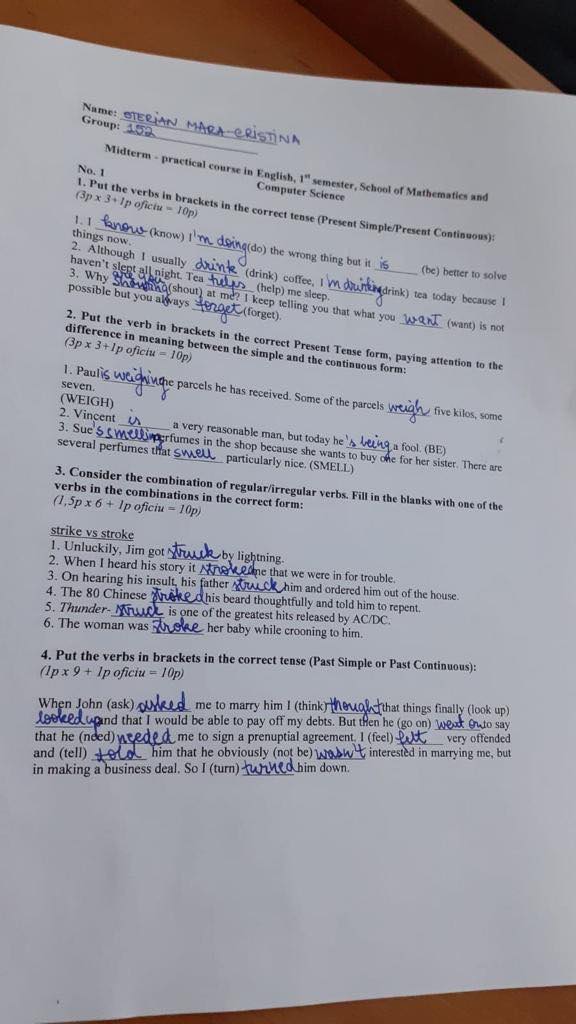 Name: STERIAN MARA-CRISTINA
Group: 152
Midterm - practical course in English, 1st semester, School of Mathematics and
Computer Science
No. 1
1. Put the verbs in brackets in the correct tense (Present Simple/Present Continuous):
(3p x 3+1p oficiu = 10p)
1. I know (know) I'm doing (do) the wrong thing but it is (be) better to solve
things now.
2. Although I usually drink (drink) coffee, I 'm drinking (drink) tea today because I
haven't slept all night. Tea helps (help) me sleep.
3. Why are you shouting (shout) at me? I keep telling you that what you want (want) is not
possible but you always forget (forget).
2. Put the verb in brackets in the correct Present Tense form, paying attention to the
difference in meaning between the simple and the continuous form:
(3p x 3+1p oficiu = 10p)
1. Paul is weighing the parcels he has received. Some of the parcels weigh five kilos, some
seven.
(WEIGH)
2. Vincent is a very reasonable man, but today he 's being a fool. (BE)
3. Sue 's smelling perfumes in the shop because she wants to buy one for her sister. There are
several perfumes that smell particularly nice. (SMELL)
3. Consider the combination of regular/irregular verbs. Fill in the blanks with one of the
verbs in the combinations in the correct form:
(1,5p x 6 + 1p oficiu = 10p)
strike vs stroke
1. Unluckily, Jim got struck by lightning.
2. When I heard his story it stroked me that we were in for trouble.
3. On hearing his insult, his father struck him and ordered him out of the house.
4. The 80 Chinese stroked his beard thoughtfully and told him to repent.
5. Thunder- struck is one of the greatest hits released by AC/DC.
6. The woman was stroke her baby while crooning to him.
4. Put the verbs in brackets in the correct tense (Past Simple or Past Continuous):
(1p x 9 + 1p oficiu = 10p)
When John (ask) asked me to marry him I (think) thought that things finally (look up)
looked up and that I would be able to pay off my debts. But then he (go on) went on to say
that he (need) needed me to sign a prenuptial agreement. I (feel) felt very offended
and (tell) told him that he obviously (not be) wasn't interested in marrying me, but
in making a business deal. So I (turn) turned him down.